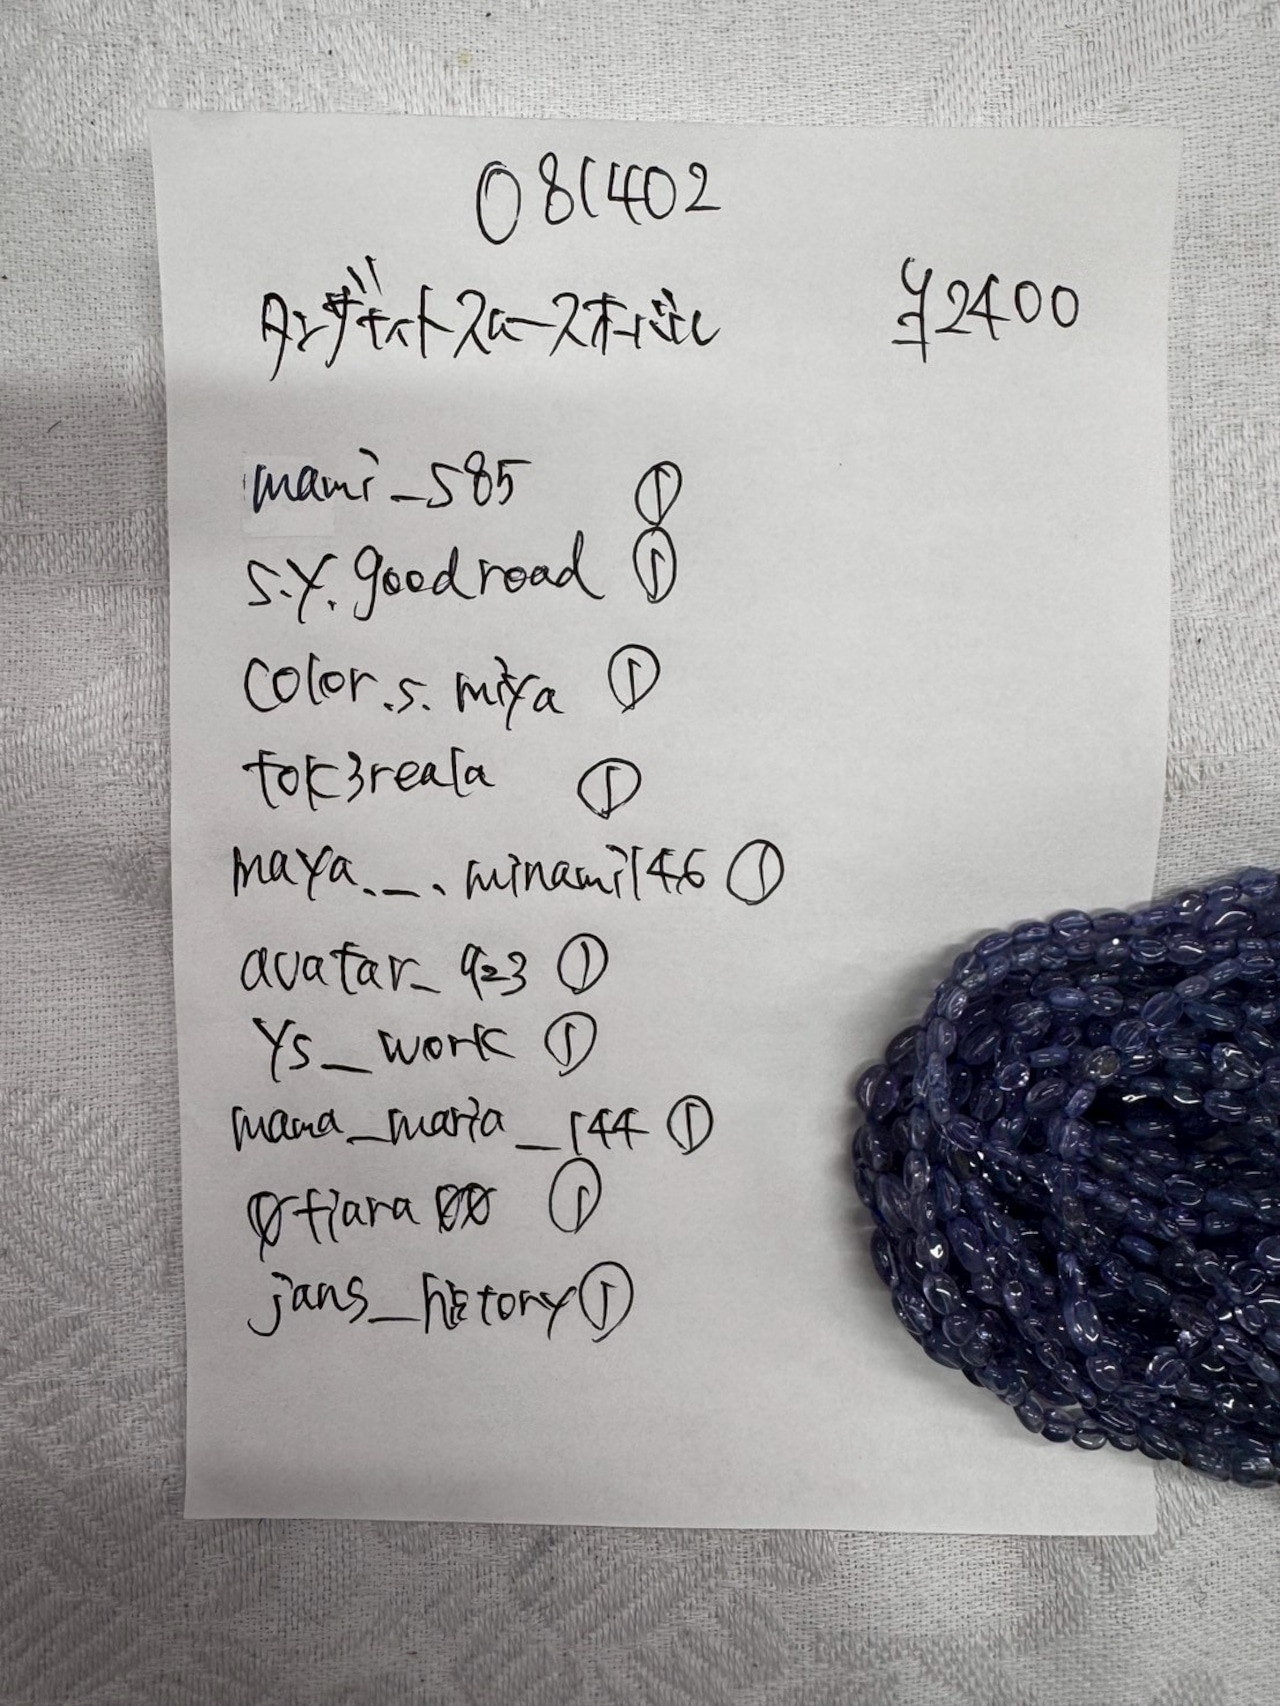 081402
タンザナイトスムースオーバル
¥2400
mami_s85 ①
s.y.goodroad ①
color.s.miya ①
tok3reala ①
maya._.minami146 ①
avatar_923 ①
ys_work ①
mama_maria_144 ①
0tiara00 ①
jans_history ①